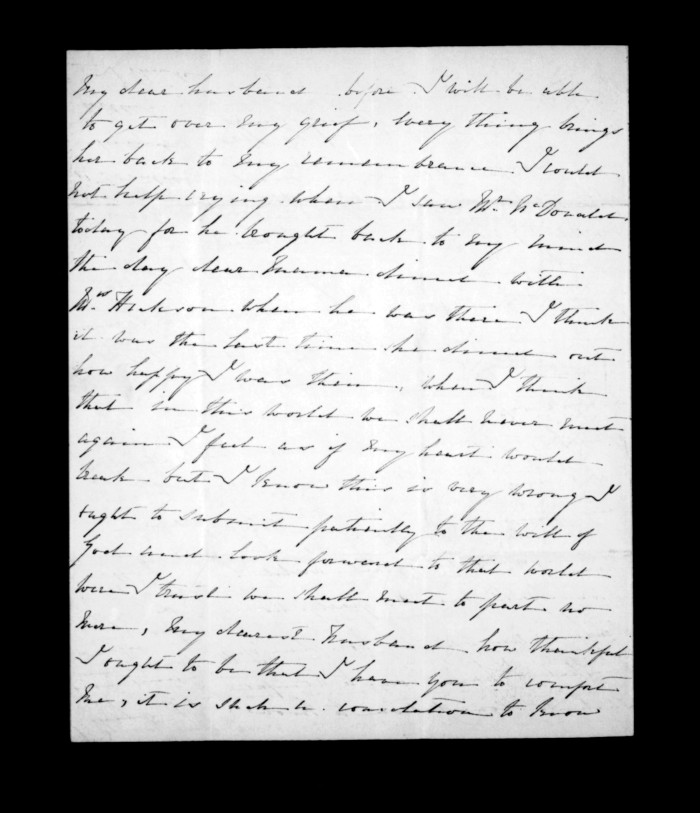 My dear husband before I will be able
to get over my grief, every thing brings
her back to my remembrance I could
not help crying when I saw Mr McDonald
today for he brought back to my mind
the day dear Mama dined with
Mrs when he was there I think
it was the last time she dined out
how happy I was then, when I think
that in this world we shall never meet
again I feel as if my heart would
break but I know this is very wrong I
ought to submit patiently to the will of
God and look forward to that world
were I trust we shall meet to part no
more, My dearest husband how thankful
I ought to be that I have you to comfort
me, it is such a consolation to know